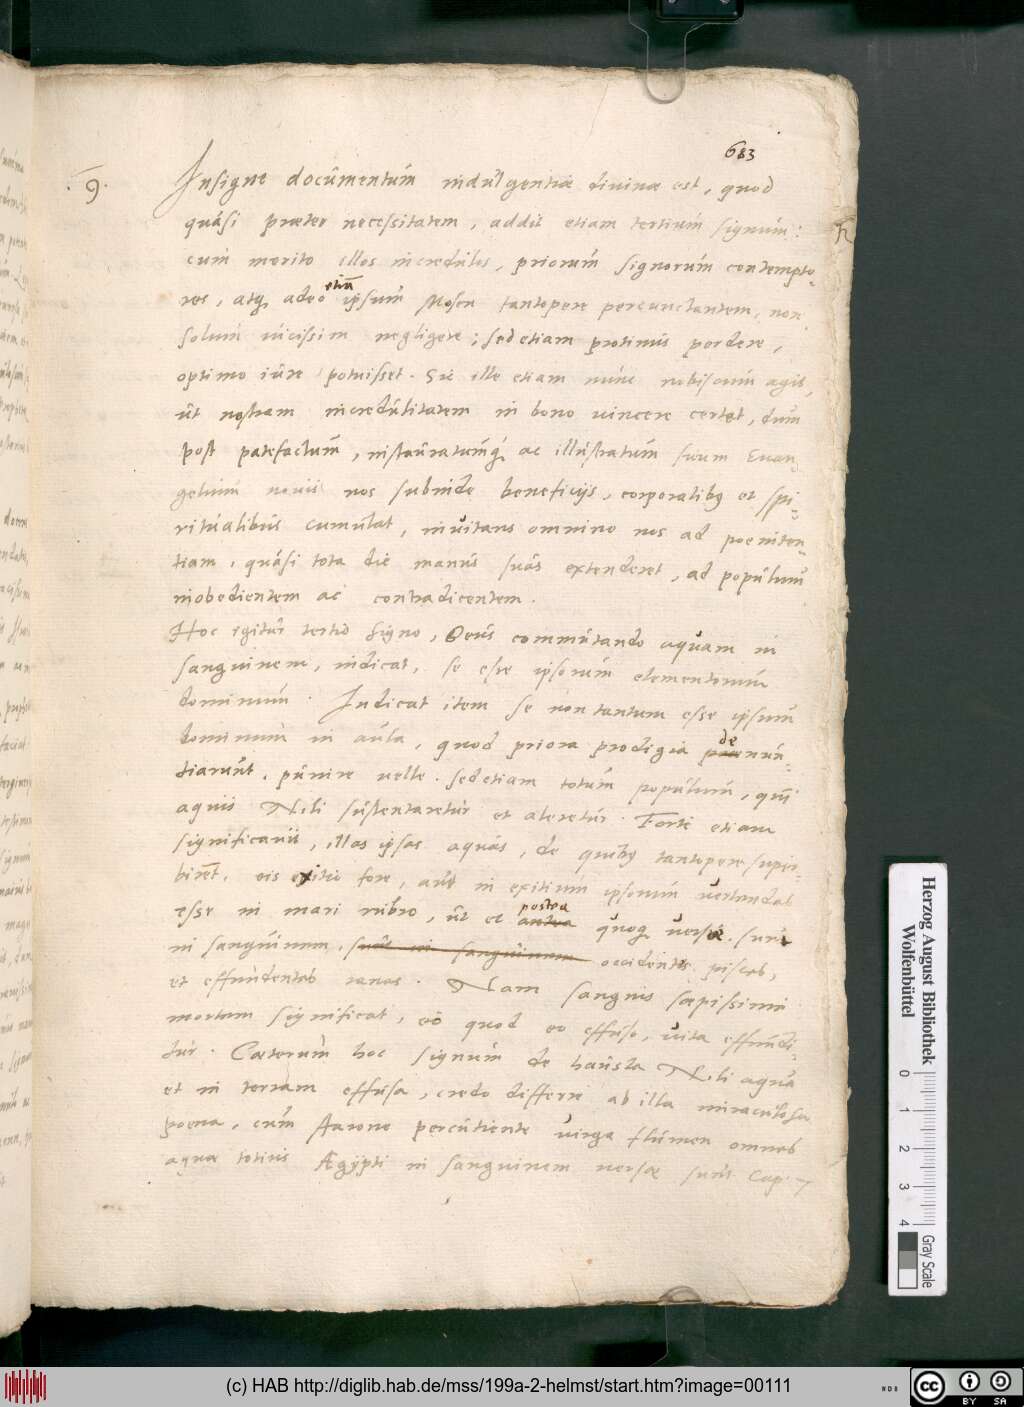 683
.9.
Insigne documentum indulgentiæ divinæ est, quod
quási præter necessitatem, addit etiam tertium signum:
cum merito illos incredulos, priorum signorum contempto-
res, atq, adeo etiã ipsum Mosen tantopere percunctantem, non
solum vicissim negligere; sed etiam protinus perdere,
optimo iure potuisset. Sic ille etiam nunc nobiscum agit,
ut nostram incredulitatem in bono vincere certet, dum
post patefactum, instauratumq, ac illustratum suum Evan-
gelium novis nos subinde beneficijs, corporalibus et spi-
ritualibus cumulat, invitans omnino nos ad poeniten-
tiam, quási tota die manus suas extenderet, ad populum
inobedientem ac contradicentem.
Hoc igitur tertio signo, Deus commutando aquam in
sanguinem, indicat, se esse ipsorum elementorum
dominum. Indicat item se non tantum esse ipsum
dominum in aula, quod priora prodigia denun-
tiarunt, punire velle. sed etiam totum populum, qui
aquis Nili sustentaretur et aleretur. Forte etiam
significavit, illas ipsas aquas, de quibus tantopere super-
birent, eis exitio fore, aut in exitium ipsorum vertendas
esse in mari rubro, ut et postea antea quoq, versæ sunt
in sanguinem, sunt in sanguinem occidentes pisces,
et effundentes ranas. Nam sanguis sæpissime
mortem significat, eò quod eo effuso, vita effundi-
tur. Cæterum hoc signum de hausta Nili aqua
et in terram effusa, credo differre ab illa miraculosa
poena, cum Aarone percutiente virga flumen omnes
aquæ totius Ægypti in sanguinem versæ sunt Cap. 7
Herzog August Bibliothek
Wolfenbüttel
0 1 2 3 4
Gray Scale
(c) HAB http://diglib.hab.de/mss/199a-2-helmst/start.htm?image=00111
cc BY SA